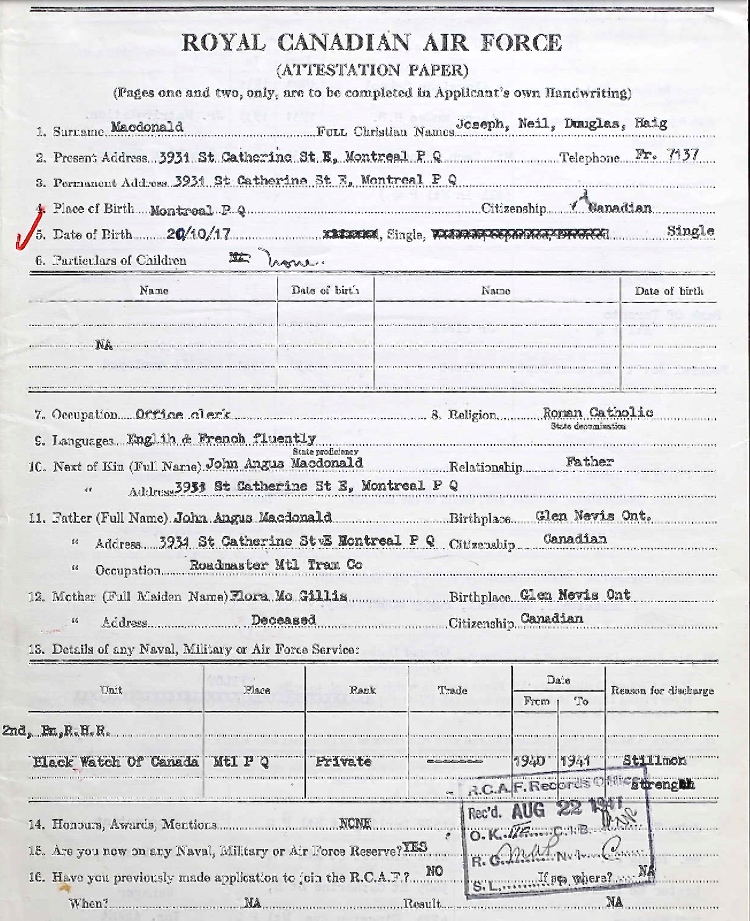 ROYAL CANADIAN AIR FORCE
(ATTESTATION PAPER)
(Pages one and two, only, are to be completed in Applicant's own Handwriting)
1. Surname Macdonald FULL Christian Names Joseph, Neil, Douglas, Haig
2. Present Address 3931 St Catherine St E, Montreal P Q Telephone Fr. 7137
3. Permanent Address 3931 St Catherine St E, Montreal P Q
4. Place of Birth Montreal P Q Citizenship Canadian
5. Date of Birth 20/10/17 Single, Single
6. Particulars of Children None.
Name Date of birth Name Date of birth
NA
7. Occupation Office clerk 8. Religion Roman Catholic
State denomination
9. Languages Englih & French fluently
State proficiency
10. Next of Kin (Full Name) John Angus Macdonald Relationship Father
" Address 3931 St Catherine St E, Montreal P Q
11. Father (Full Name) John Angus Macdonald Birthplace Glen Nevis Ont.
" Address 3931 St Catherine St E Montreal P Q Citizenship Canadian
" Occupation Roadmaster Mtl Tram Co
12. Mother (Full Maiden Name) Flora Mc Gillis Birthplace Glen Nevis Ont
" Address Deceased Citizenship Canadian
13. Details of any Naval, Military or Air Force Service:
Unit Place Rank Trade Date From To Reason for discharge
2nd, Bn,R.H.R.
Black Watch Of Canada Mtl P Q Private 1940 1941 Stillmon
strength
R.C.A.F. Records Office
Rec'd. AUG 22 1941
O.K. C.I.B.
R.C. N.
S.L.
14. Honours, Awards, Mentions NONE
15. Are you now on any Naval, Military or Air Force Reserve? YES
16. Have you previously made application to join the R.C.A.F.? NO If so where? NA
When? NA Result NA